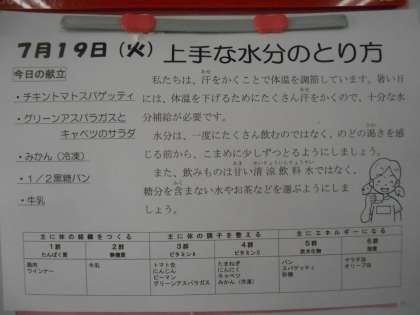 7月19日(火) 上手な水分のとり方
今日の献立
・チキントマトスパゲッティ
・グリーンアスパラガスと
キャベツのサラダ
・みかん(冷凍)
・1/2黒糖パン
・牛乳
私たちは、汗をかくことで体温を調節しています。暑い日
には、体温を下げるためにたくさん汗をかくので、十分な水
分補給が必要です。
水分は、一度にたくさん飲むのではなく、のどの渇きを感
じる前から、こまめに少しずつとるようにしましょう。
また、飲みものは甘い清涼飲料水ではなく、
糖分を含まない水やお茶などを選ぶようにしま
しょう。
主に体の組織をつくる 主に体の調子を整える 主にエネルギーになる
1群 2群 3群 4群 5群 6群
たんぱく質 無機質 ビタミンA ビタミンC 炭水化物 脂質
鶏肉 牛乳 トマト缶 たまねぎ パン サラダ油
ウインナー にんじん にんにく スパゲッティ オリーブ油
ピーマン キャベツ 砂糖
グリーンアスパラガス みかん(冷凍)